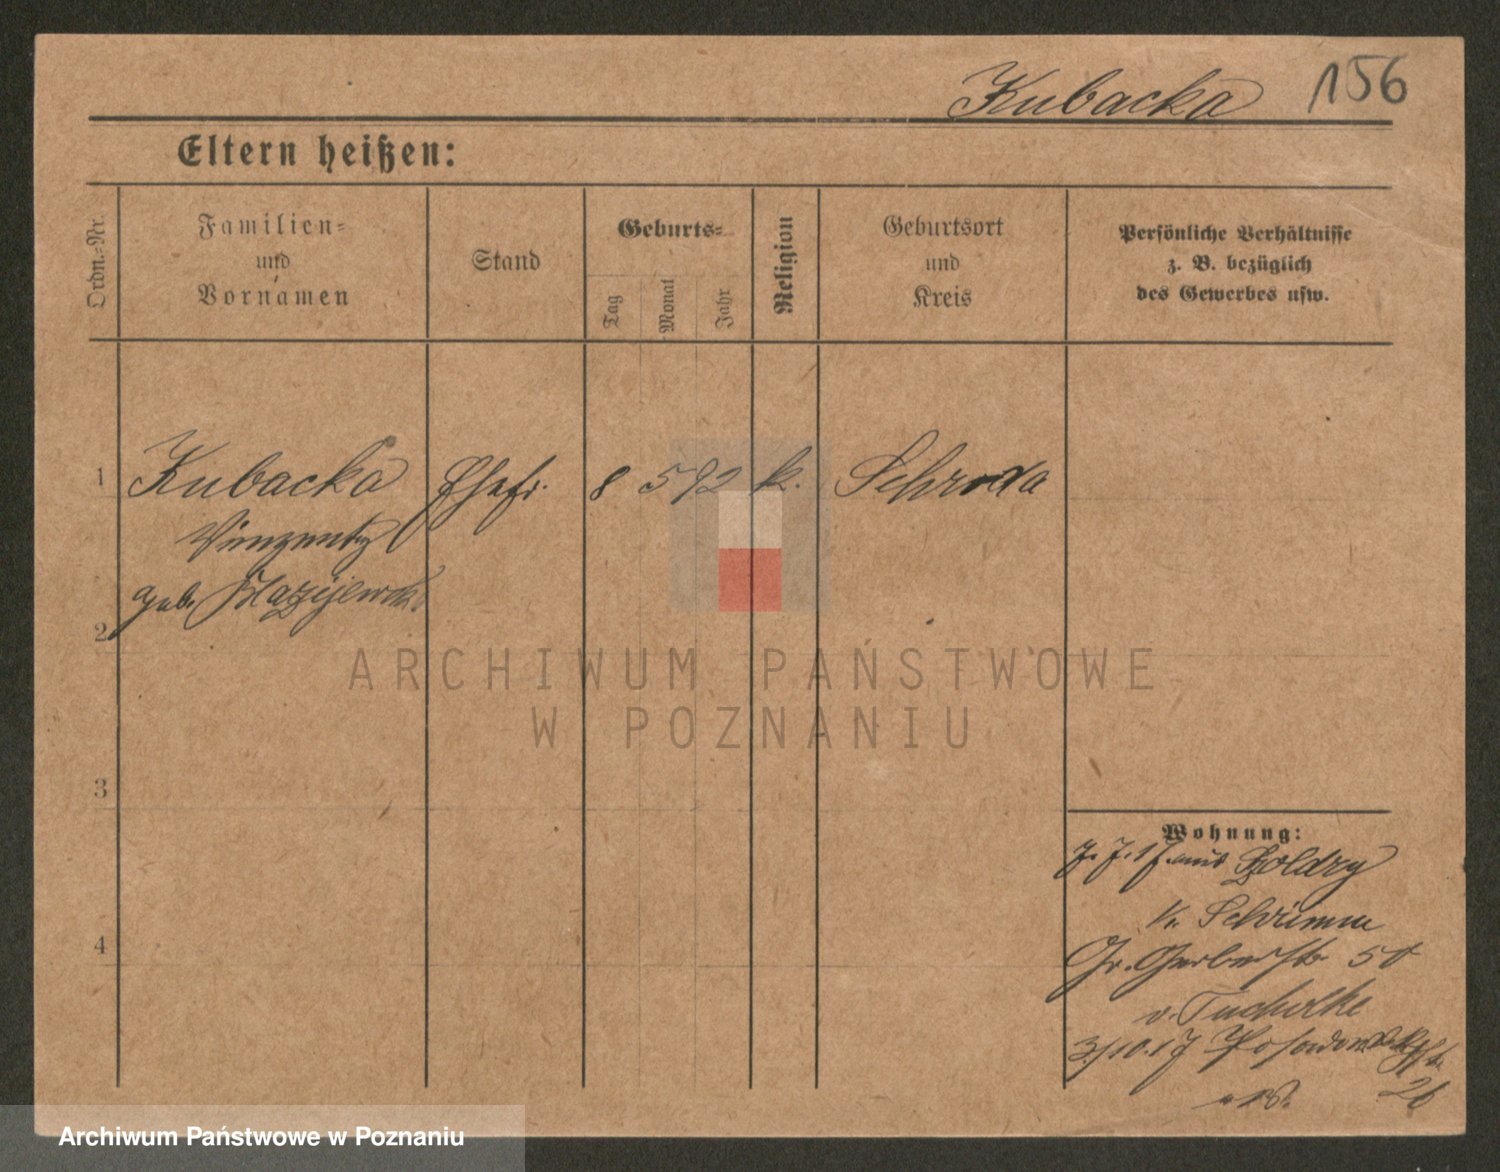 Kubacka 156
Eltern heißen:
Ordn.-Nr.
Familien- und Vornamen
Stand
Geburts-
Tag
Monat
Jahr
Religion
Geburtsort und Kreis
Persönliche Verhältnisse
z. B. bezüglich
des Gewerbes usw.
1 Kubacka Ehefr. 8 5 92 k. Schroda
Vinzenta
geb.
2
3
4
Wohnung:
aus
K. Schrimm
Gr. Gerberstr. 50
v. Tucholke
3/10.17
26
ARCHIWUM PAŃSTWOWE
W POZNANIU
Archiwum Państwowe w Poznaniu